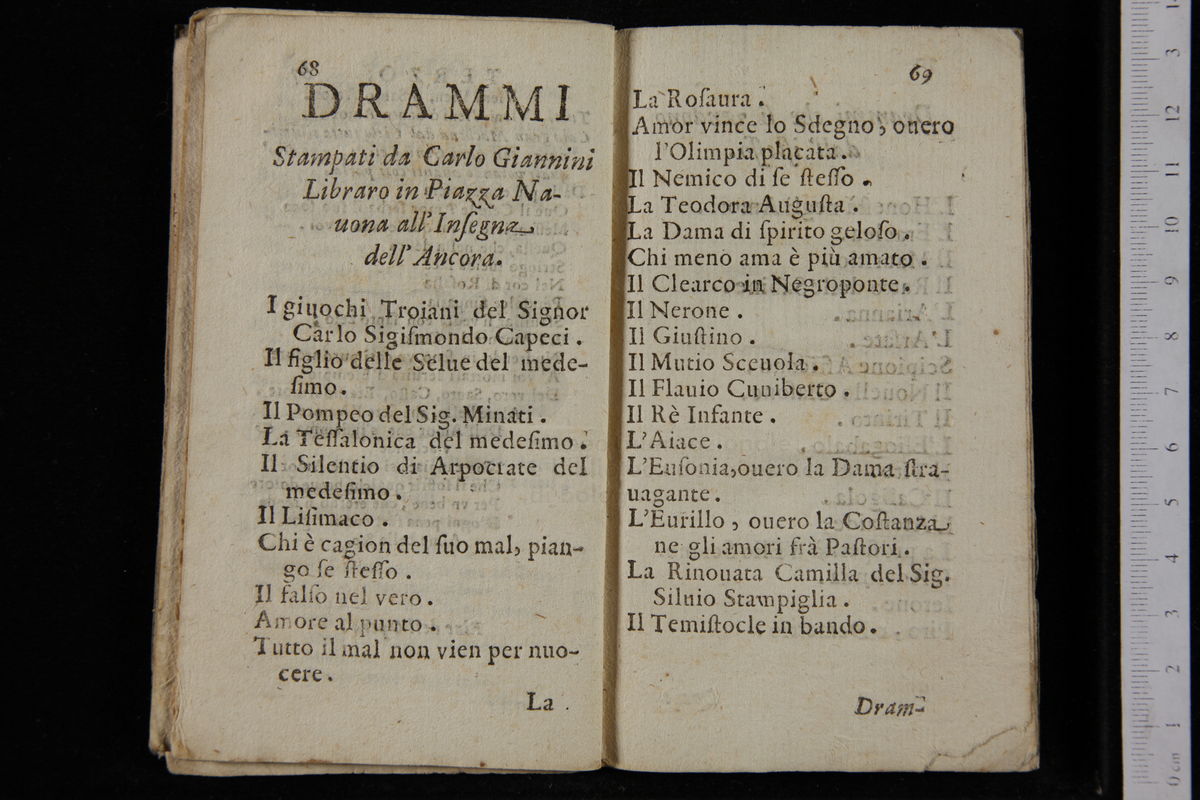 68
DRAMMI
Stampati da Carlo Giannini
Libraro in Piazza Na-
uona all'Inſegna
dell'Ancora.
I giuochi Troiani del Signor
Carlo Sigiſmondo Capeci.
Il figlio delle Selue del mede-
ſimo.
Il Pompeo del Sig. Minati.
La Teſſalonica del medeſimo.
Il Silentio di Arpocrate del
medeſimo.
Il Liſimaco.
Chi è cagion del ſuo mal, pian-
go ſe ſteſſo.
Il falſo nel vero.
Amore al punto.
Tutto il mal non vien per nuo-
cere.
La
69
La Roſaura.
Amor vince lo Sdegno, ouero
l'Olimpia placata.
Il Nemico di ſe ſteſſo.
La Teodora Auguſta.
La Dama di ſpirito geloſo.
Chi meno ama è più amato.
Il Clearco in Negroponte.
Il Nerone.
Il Giuſtino.
Il Mutio Sceuola.
Il Flauio Cuniberto.
Il Rè Infante.
L'Aiace.
L'Euſonia, ouero la Dama ſtra-
uagante.
L'Eurillo, ouero la Coſtanza
ne gli amori frà Paſtori.
La Rinouata Camilla del Sig.
Siluio Stampiglia.
Il Temiſtocle in bando.
Dram-
14
3
12
11
10
9
8
7
6
5
4
3
2
1
0 cm